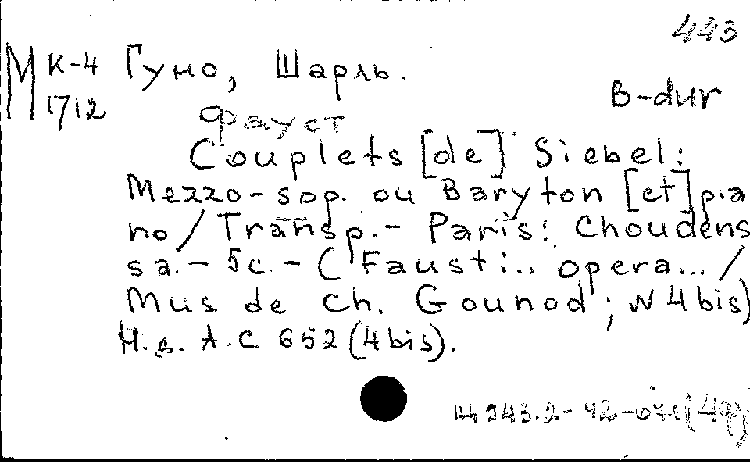 443
М К-4 Гуно, Шарль.
1712
B-dur
Фауст
Couplets [de] Siebel:
Mezzo-sop. ou Baryton [et] pia
no / Transp. - Paris: Choudens
sa. - 5c. - (Faust: .. opera... /
Mus de Ch. Gounod; N 4bis)
Н.д. A.C 652 (4bis).